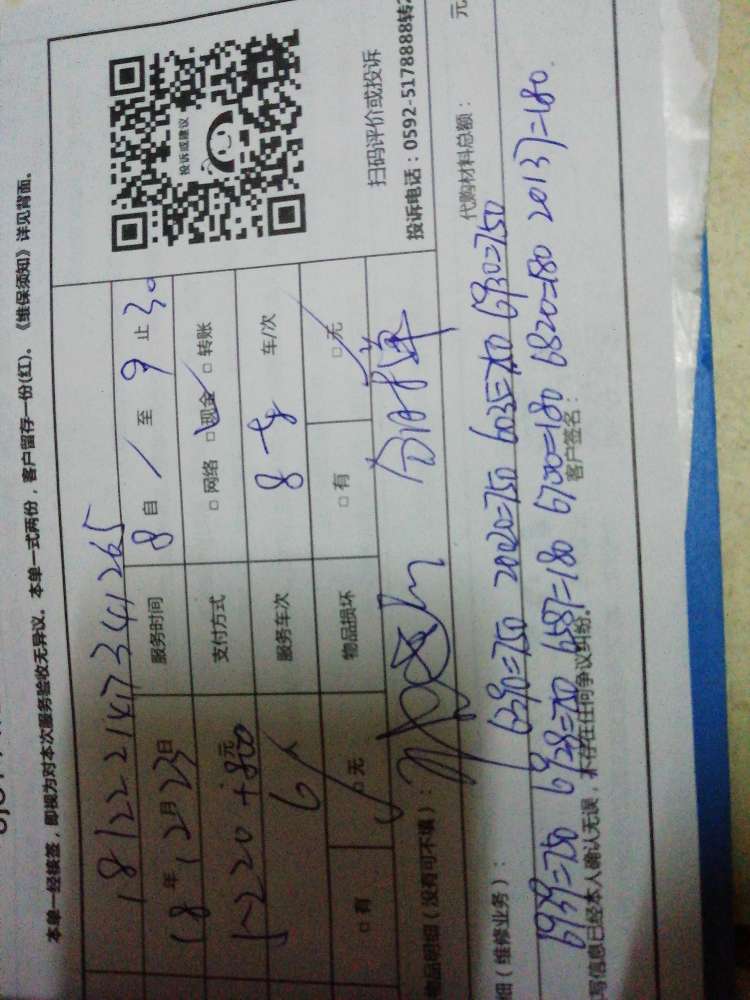 本单一经核签，即视为对本次服务验收无异议。本单一式两份，客户留存一份(红)。《维保须知》详见背面。
181222147341265
18年12月23日 服务时间 8自 至 9止30
5220+800元 支付方式 □网络 □现金 □转账
6人 服务车次 8车 车/次
□有 □无 物品损坏 □有 □无
投诉或建议
扫码评价或投诉
投诉电话：0592-5178888转2
物品明细（没有可不填）： 合计单
细（维修业务）： 代购材料总额： 元
6390=750 20020=750 6035=750 6930=750
6939=750 6928=750 6587=180 6700=180 6820=180 20137=180
写信息已经本人确认无误，不存在任何争议纠纷。 客户签名：